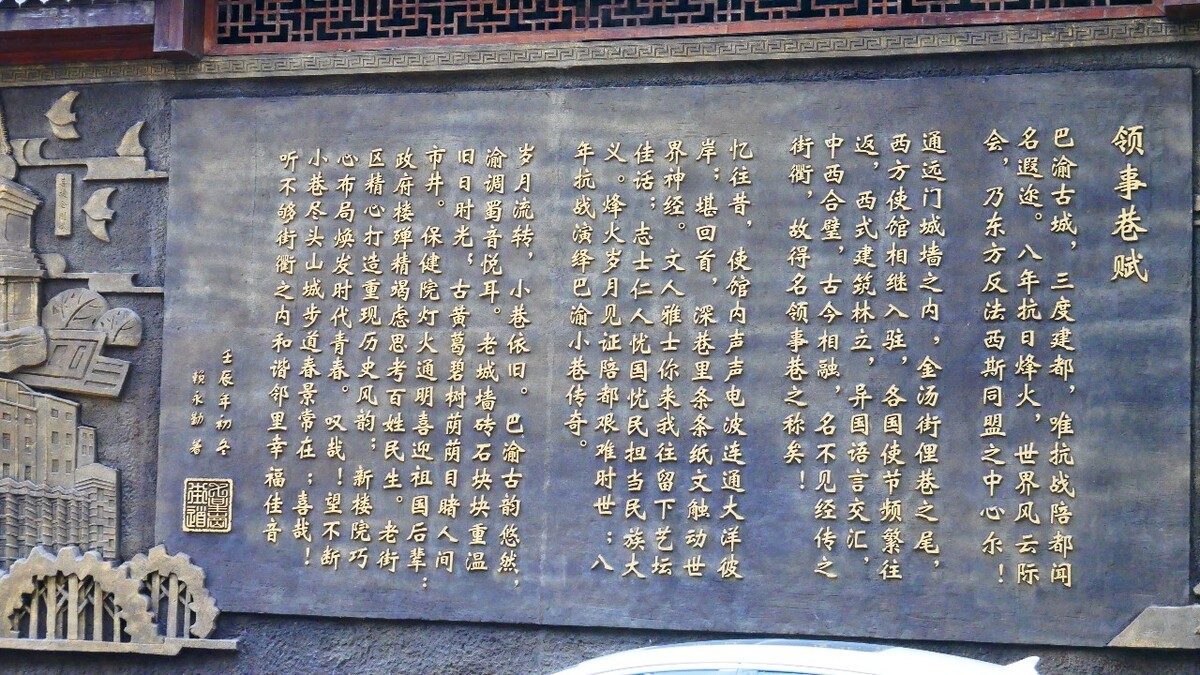 领事巷赋
巴渝古城，三度建都，唯抗战陪都闻
名遐迩。八年抗日烽火，世界风云际
会，乃东方反法西斯同盟之中心尔！
通远门城墙之内，金汤街俚巷之尾，
西方使馆相继入驻，各国使节频繁往
返，西式建筑林立，异国语言交汇，
中西合璧，古今相融，名不见经传之
街衢，故得名领事巷之称矣！
忆往昔，使馆内声声电波连通大洋彼
岸；堪回首，深巷里条条纸文触动世
界神经。文人雅士你来我往留下艺坛
佳话；志士仁人忧国忧民担当民族大
义。烽火岁月见证陪都艰难时世；八
年抗战演绎巴渝小巷传奇。
岁月流转，小巷依旧。巴渝古韵悠然，
渝调蜀音悦耳。老城墙砖石块块重温
旧日时光；古黄葛碧树荫荫目睹人间
市井。保健院灯火通明喜迎祖国后辈；
政府楼殚精竭虑思考百姓民生。老街
区精心打造重现历史风韵；新楼院巧
心布局焕发时代青春。叹哉！望不断
小巷尽头山城步道春景常在；喜哉！
听不够街衢之内和谐邻里幸福佳音
壬辰年初冬
赖永勤 著